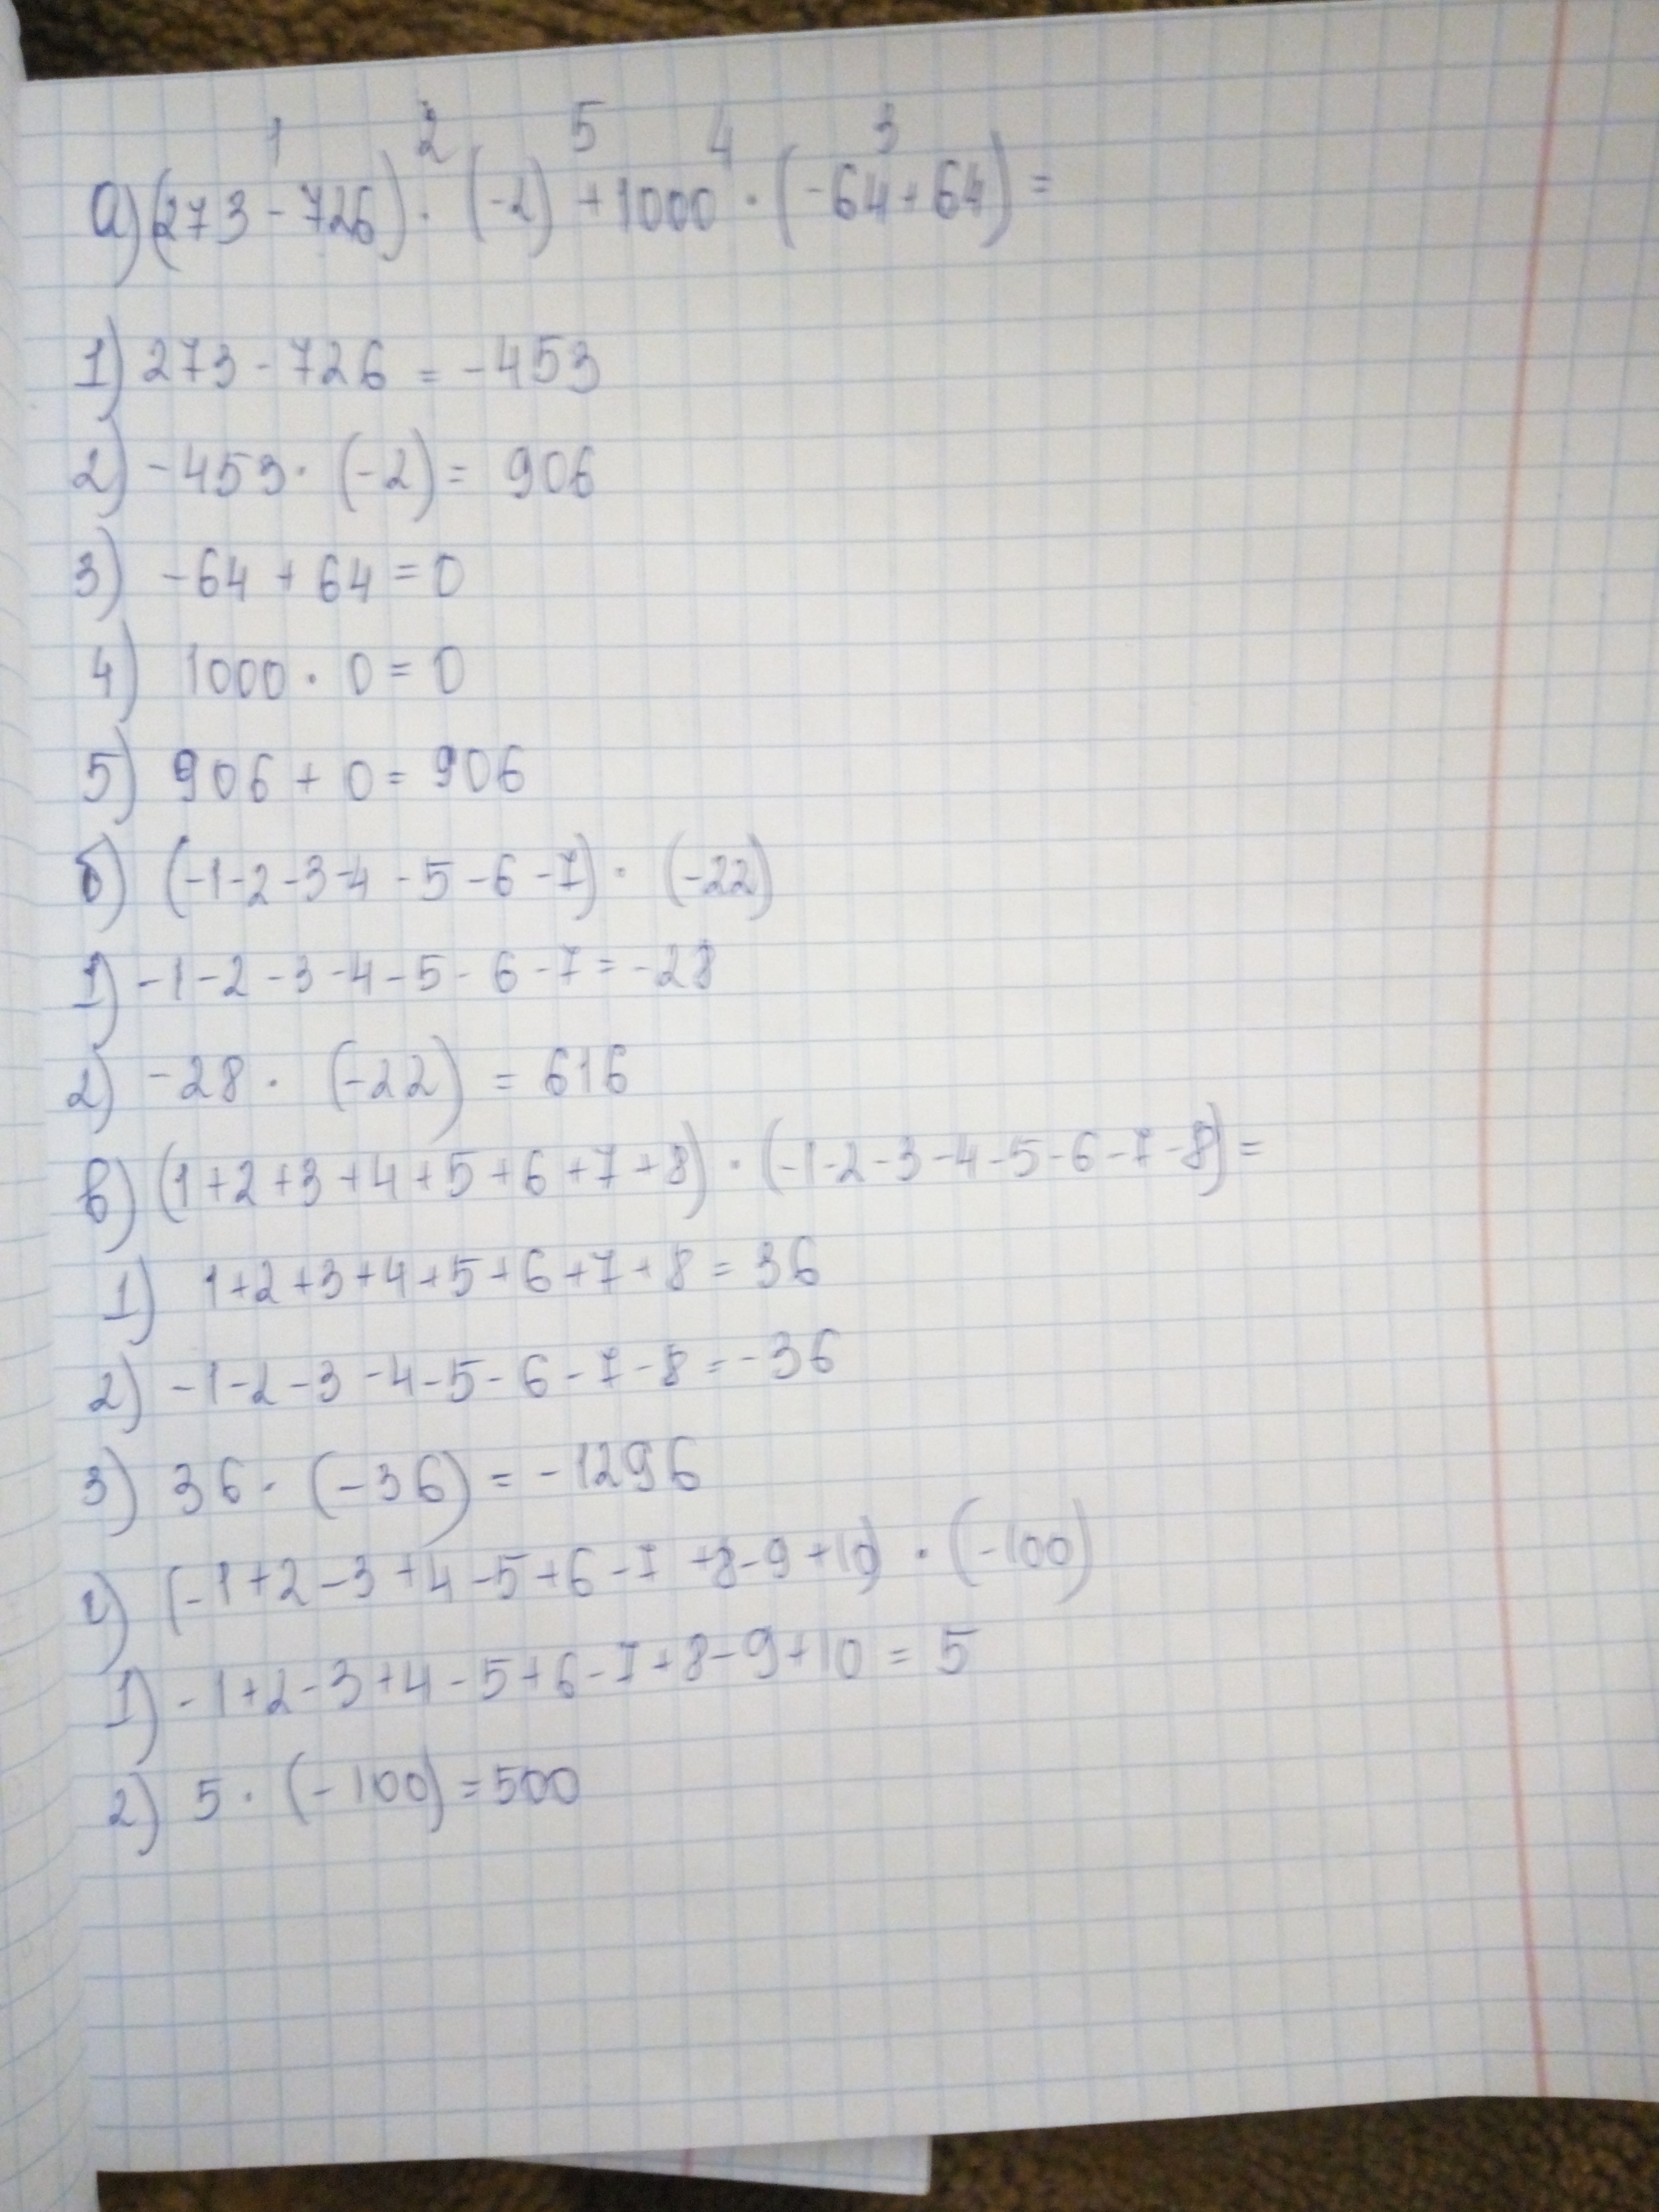 1 2 5 4 3
а) (273 - 726) · (-2) + 1000 · (-64 + 64) =
1) 273 - 726 = -453
2) -453 · (-2) = 906
3) -64 + 64 = 0
4) 1000 · 0 = 0
5) 906 + 0 = 906
б) (-1-2-3-4-5-6-7) · (-22)
1) -1-2-3-4-5-6-7=-28
2) -28 · (-22) = 616
в) (1+2+3+4+5+6+7+8) · (-1-2-3-4-5-6-7-8) =
1) 1+2+3+4+5+6+7+8 = 36
2) -1-2-3-4-5-6-7-8=-36
3) 36 · (-36) = -1296
г) (-1+2-3+4-5+6-7+8-9+10) · (-100)
1) -1+2-3+4-5+6-7+8-9+10 = 5
2) 5 · (-100) = 500